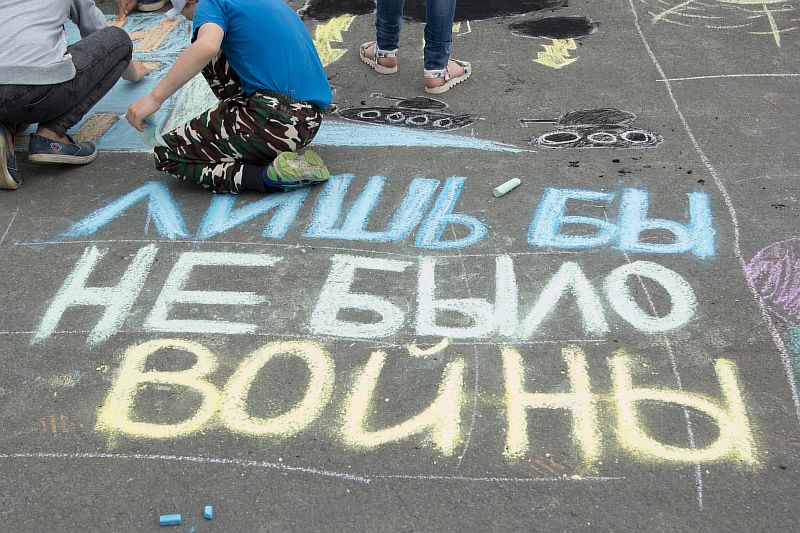 ЛИШЬ БЫ
НЕ БЫЛО
ВОЙНЫ